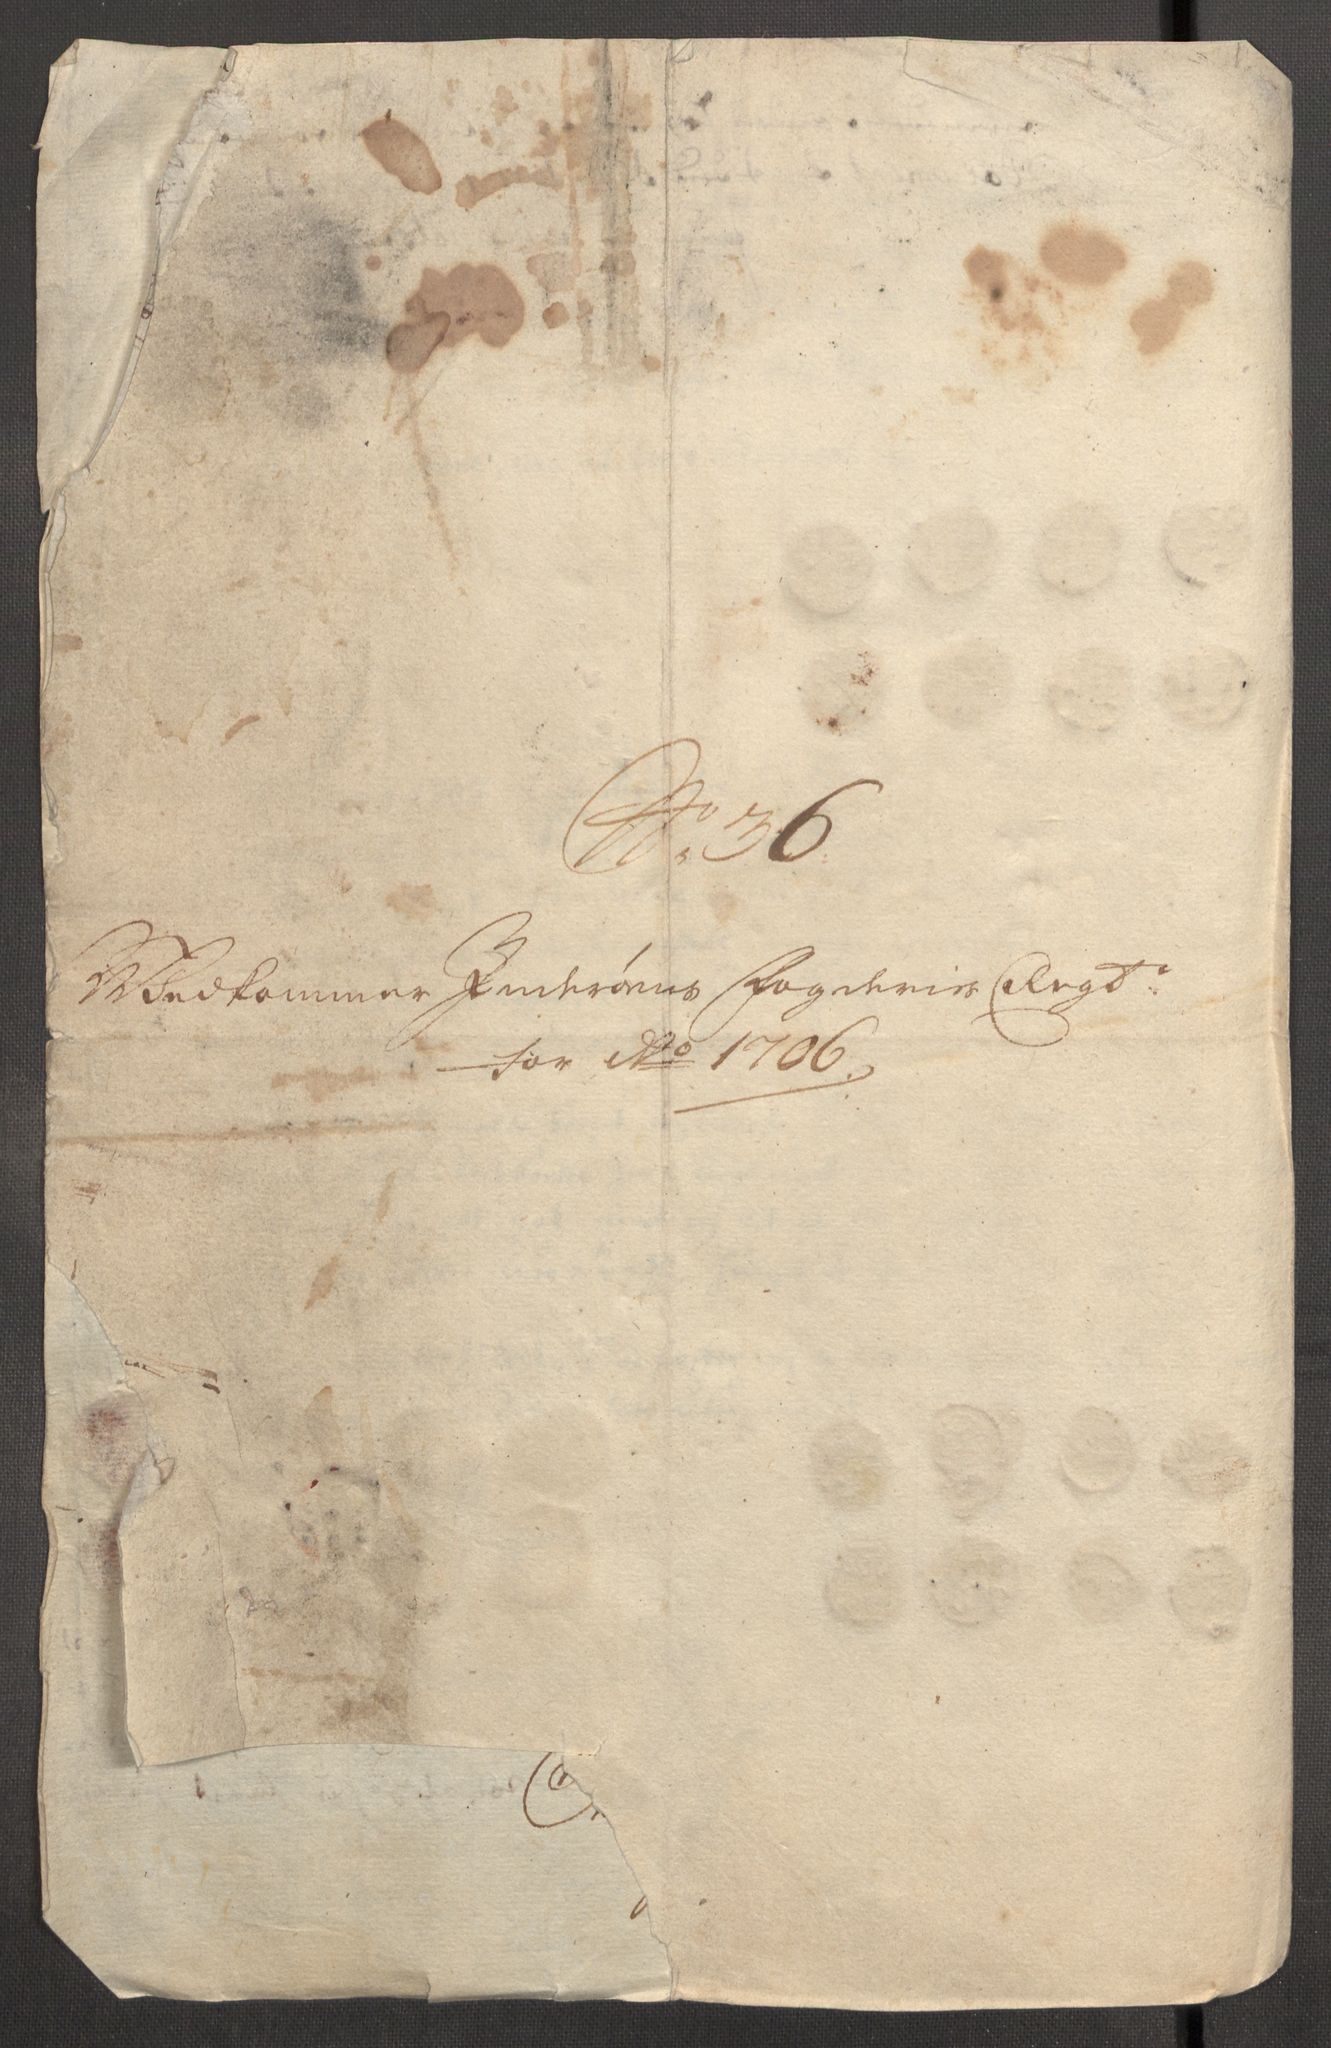 No. 36
Vedkommer Inderöens Fogderies Regt:
for Ao 1706.